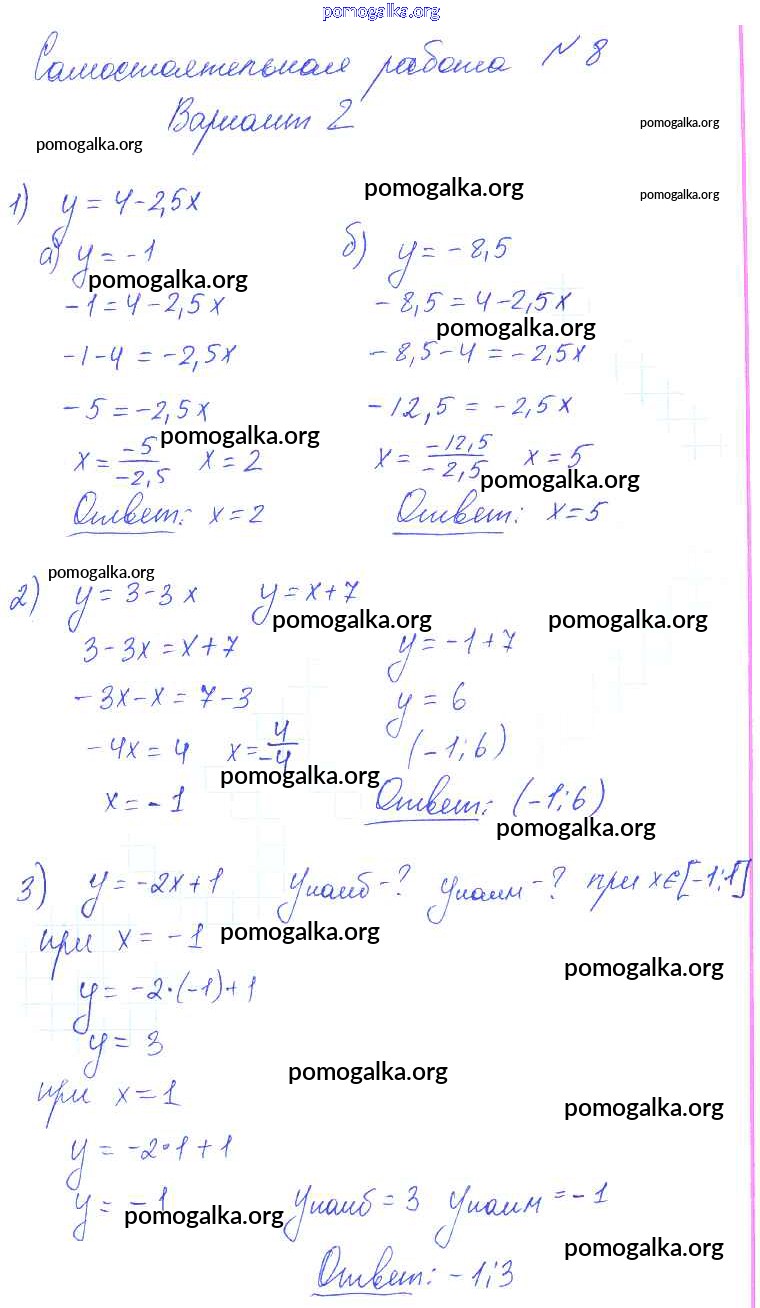 pomogalka.org
Самостоятельная работа № 8
Вариант 2
pomogalka.org
pomogalka.org
1) y = 4 - 2,5x
pomogalka.org
pomogalka.org
а) y = -1
б) y = -8,5
pomogalka.org
-1 = 4 - 2,5x
-8,5 = 4 - 2,5x
pomogalka.org
-1 - 4 = -2,5x
-8,5 - 4 = -2,5x
-5 = -2,5x
-12,5 = -2,5x
pomogalka.org
x = -5/-2,5 x = 2
x = -12,5/-2,5 x = 5
pomogalka.org
Ответ: x = 2
Ответ: x = 5
pomogalka.org
2) y = 3 - 3x y = x + 7
pomogalka.org
pomogalka.org
3 - 3x = x + 7
y = -1 + 7
-3x - x = 7 - 3
y = 6
-4x = 4 x = 4/-4
(-1; 6)
pomogalka.org
x = -1
Ответ: (-1; 6)
pomogalka.org
3) y = -2x + 1 yнаиб - ? yнаим - ? при x∈[-1; 1]
при x = -1
pomogalka.org
pomogalka.org
y = -2·(-1) + 1
y = 3
pomogalka.org
при x = 1
pomogalka.org
y = -2·1 + 1
y = -1
yнаиб = 3 yнаим = -1
pomogalka.org
pomogalka.org
Ответ: -1; 3